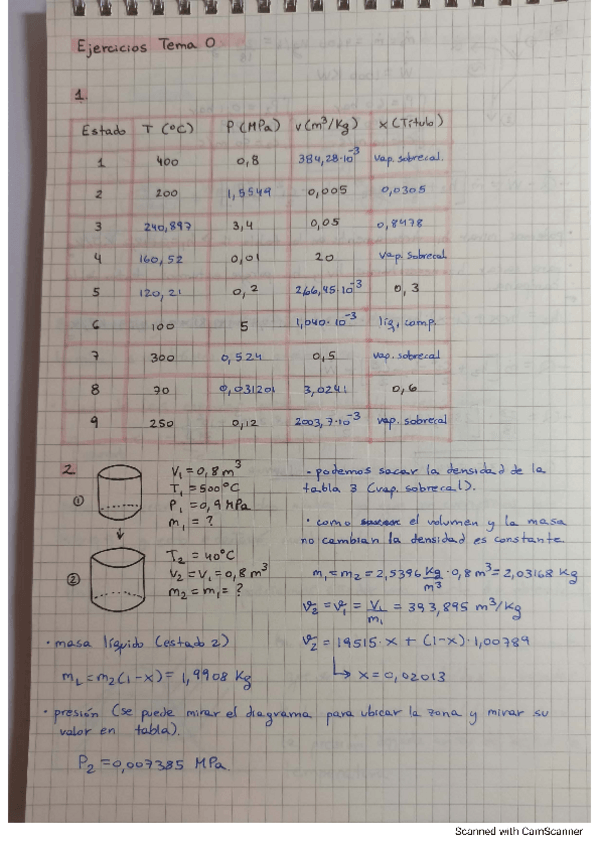 Ejercicios Tema 0
1.
Estado T (ºC) P (MPa) v (m³/Kg) x (Título)
1 400 0,8 384,28·10⁻³ vap. sobrecal.
2 200 1,5549 0,005 0,0305
3 240,897 3,4 0,05 0,8478
4 160,52 0,01 20 vap. sobrecal
5 120,21 0,2 266,45·10⁻³ 0,3
6 100 5 1,040·10⁻³ liq. comp.
7 300 0,524 0,5 vap. sobrecal
8 70 0,031201 3,0241 0,6
9 250 0,12 2003,7·10⁻³ vap. sobrecal
2
①
V₁ = 0,8 m³
T₁ = 500ºC
P₁ = 0,9 MPa
m₁ = ?
②
T₂ = 40ºC
V₂ = V₁ = 0,8 m³
m₂ = m₁ = ?
· podemos sacar la densidad de la
tabla 3 (vap. sobrecal).
· como el volumen y la masa
no cambian la densidad es constante.
m₁ = m₂ = 2,5396 Kg/m³ · 0,8 m³ = 2,03168 Kg
v₂ = v₁ = V₁/m₁ = 393,895 m³/Kg
v₂ = 19515 · x + (1-x) · 1,00789
↳ x = 0,02013
· masa líquido (estado 2)
m_L = m₂(1-x) = 1,9908 Kg
· presión (se puede mirar el diagrama para ubicar la zona y mirar su
valor en tabla).
P₂ = 0,007385 MPa.
Scanned with CamScanner